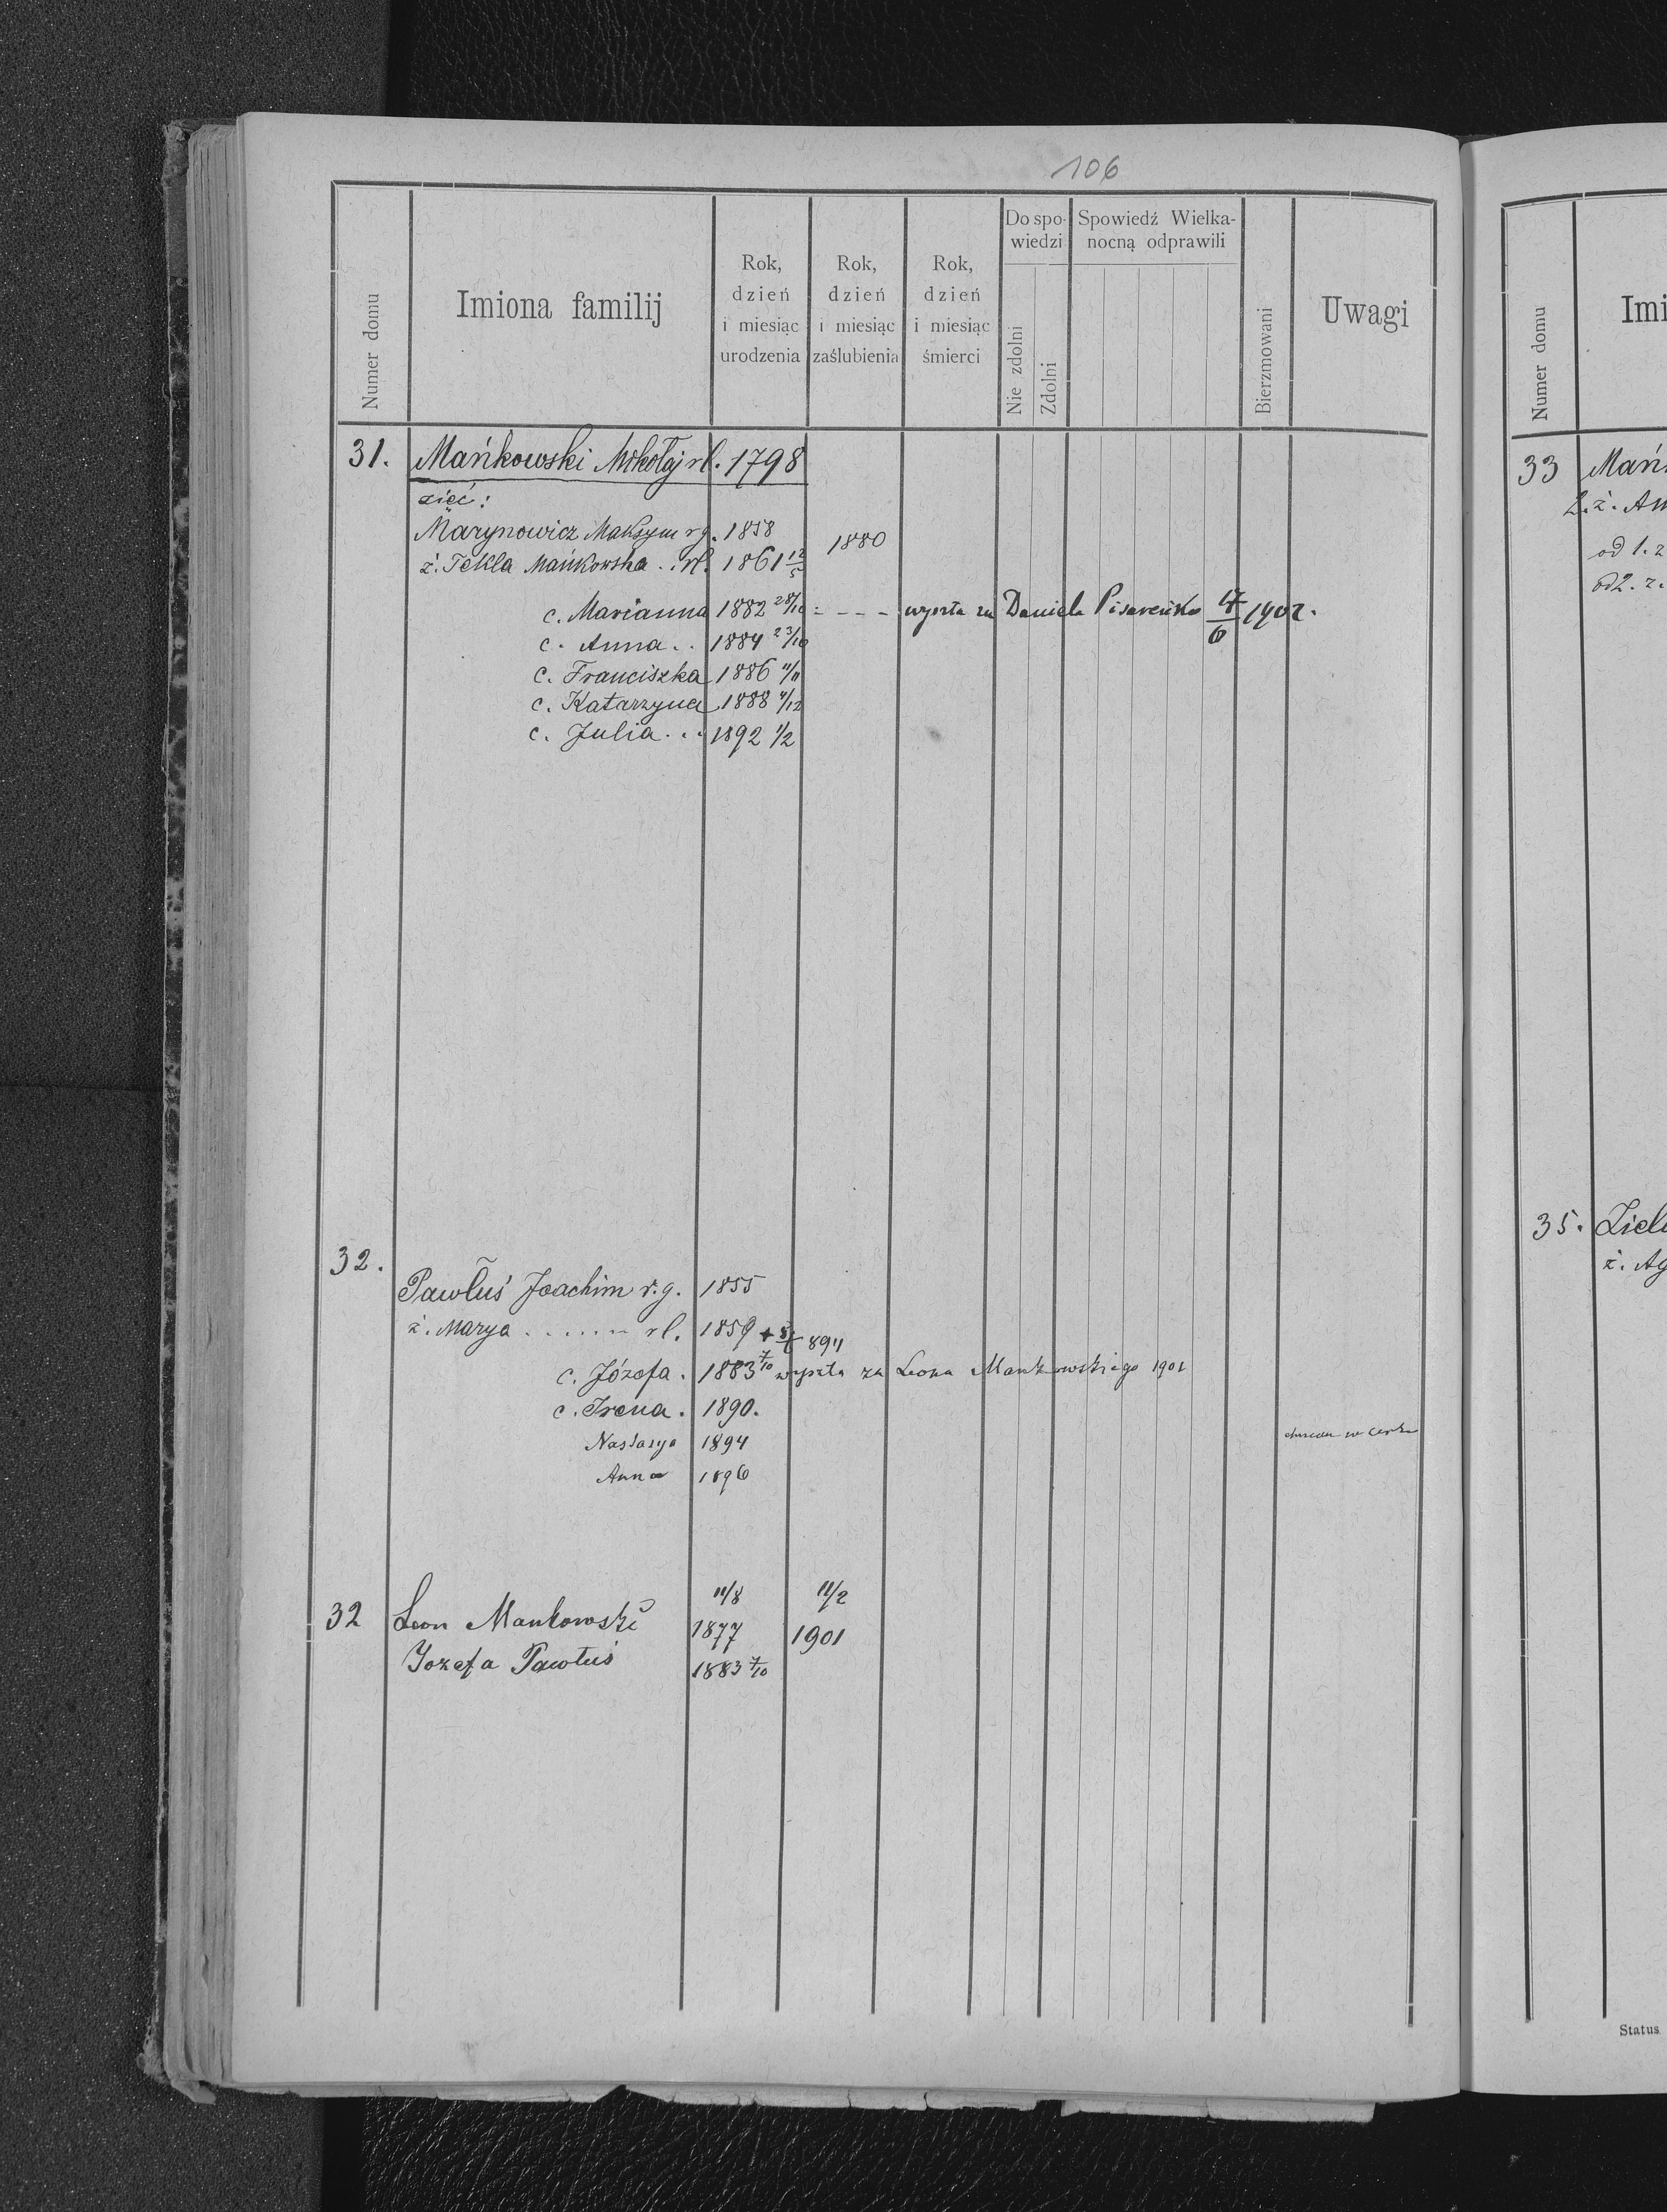 106
Numer domu
Imiona familij
Rok, dzień i miesiąc urodzenia
Rok, dzień i miesiąc zaślubienia
Rok, dzień i miesiąc śmierci
Do spowiedzi
Nie zdolni
Zdolni
Spowiedź Wielkanocną odprawili
Bierzmowani
Uwagi
31. Mańkowski Mikołaj rł. 1798
zięć:
Marynowicz Maksym rg. 1858
1880
ż. Tekla Mańkowska .. rł. 1861 12/5
c. Marianna 1882 28/10 - - - - wyszła za Daniela Pisareńko 17/6 1902.
c. Anna .. 1884 23/10
c. Franciszka 1886 11/11
c. Katarzyna 1888 4/12
c. Julia ... 1892 1/2
32.
Pawłuś Joachim r.g. 1855
ż. Marya ...... rł. 1859 + 894
c. Józefa . 1883 7/10 wyszła za Leona Mankowskiego 1901
c. Irena . 1890.
Nastasya 1894
Anna 1896
32 Leon Mankowski 11/8 1877 11/2 1901
Jozefa Pawłuś 1883 7/10
Numer domu
Imi
33 Mań
2. ż. An
od 1. ż
od 2. ż.
35. Ziel
ż. Ag
Status